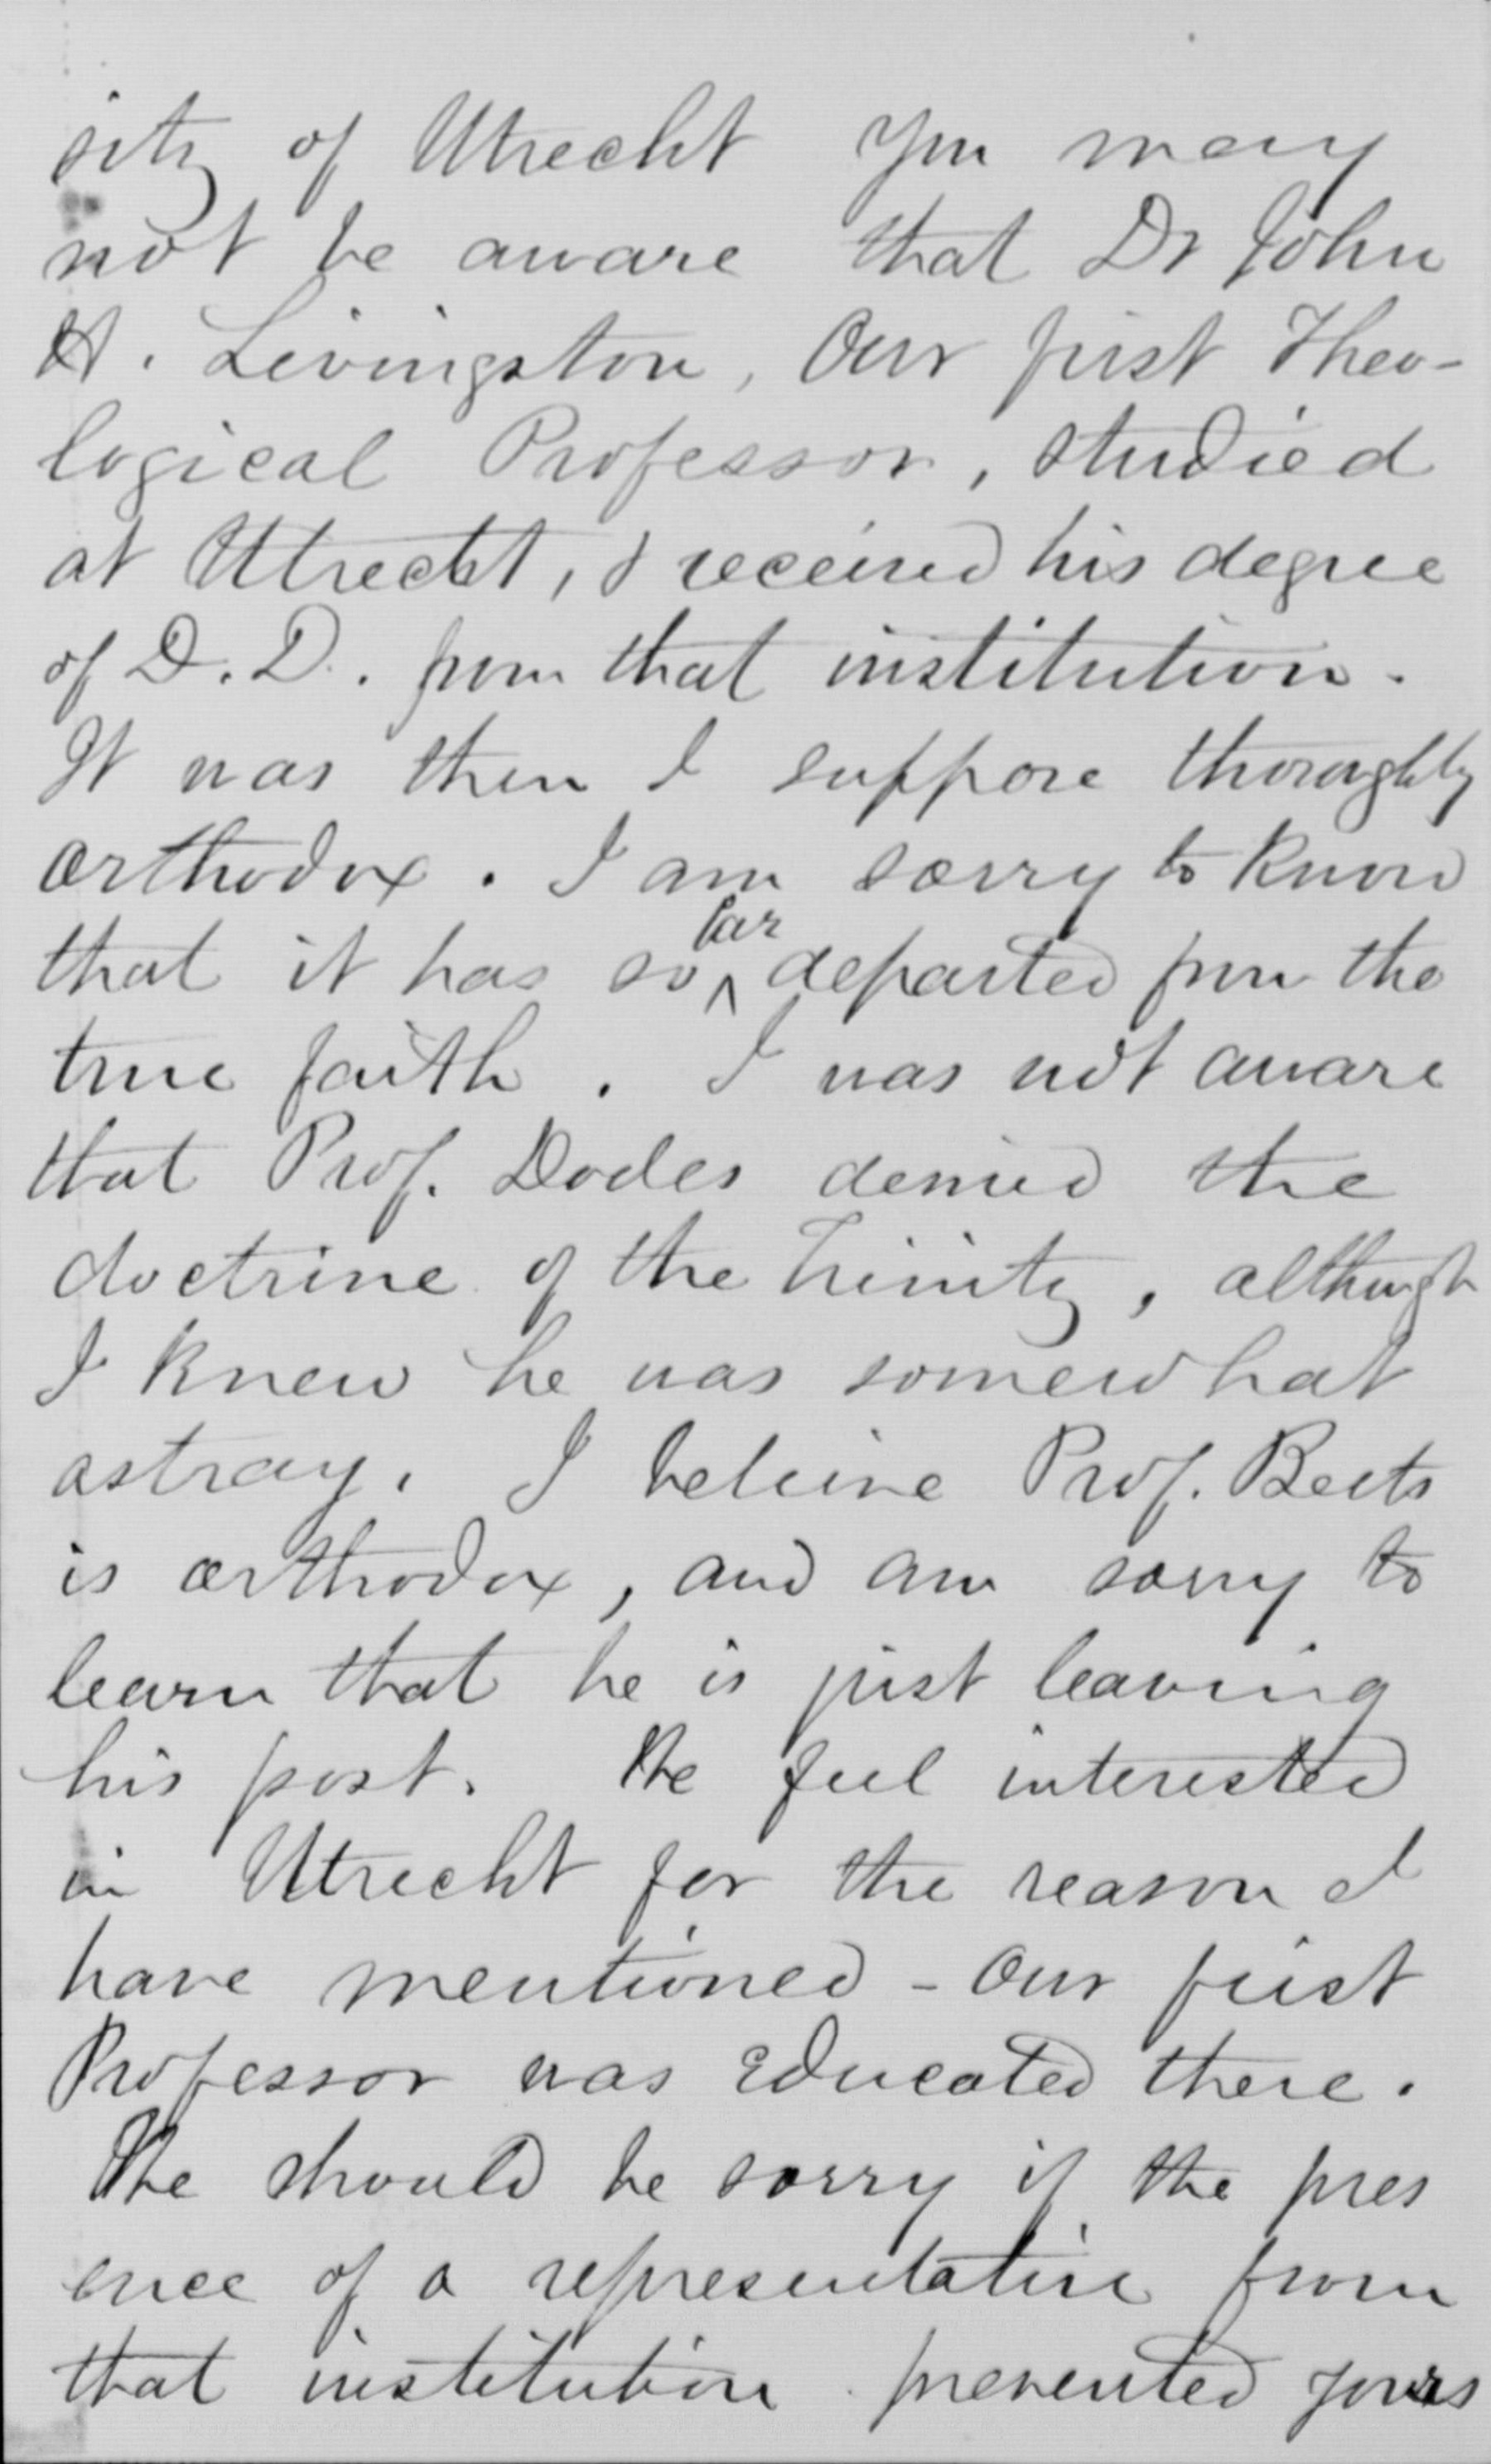 sity of Utrecht You may
not be aware that Dr John
H. Livingston, Our first Theo-
logical Professor, studied
at Utrecht, & received his degree
of D.D. from that institution.
It was then I suppose thoroughly
orthodox. I am sorry to know
that it has so far departed from the
true faith. I was not aware
that Prof. Dodes denied the
doctrine of the Trinity, although
I knew he was somewhat
astray. I believe Prof. Beets
is orthodox, and am sorry to
learn that he is just leaving
his post. We feel interested
in Utrecht for the reason I
have mentioned - Our first
Professor was Educated there.
We should be sorry if the pres
ence of a representative from
that institution prevented yours